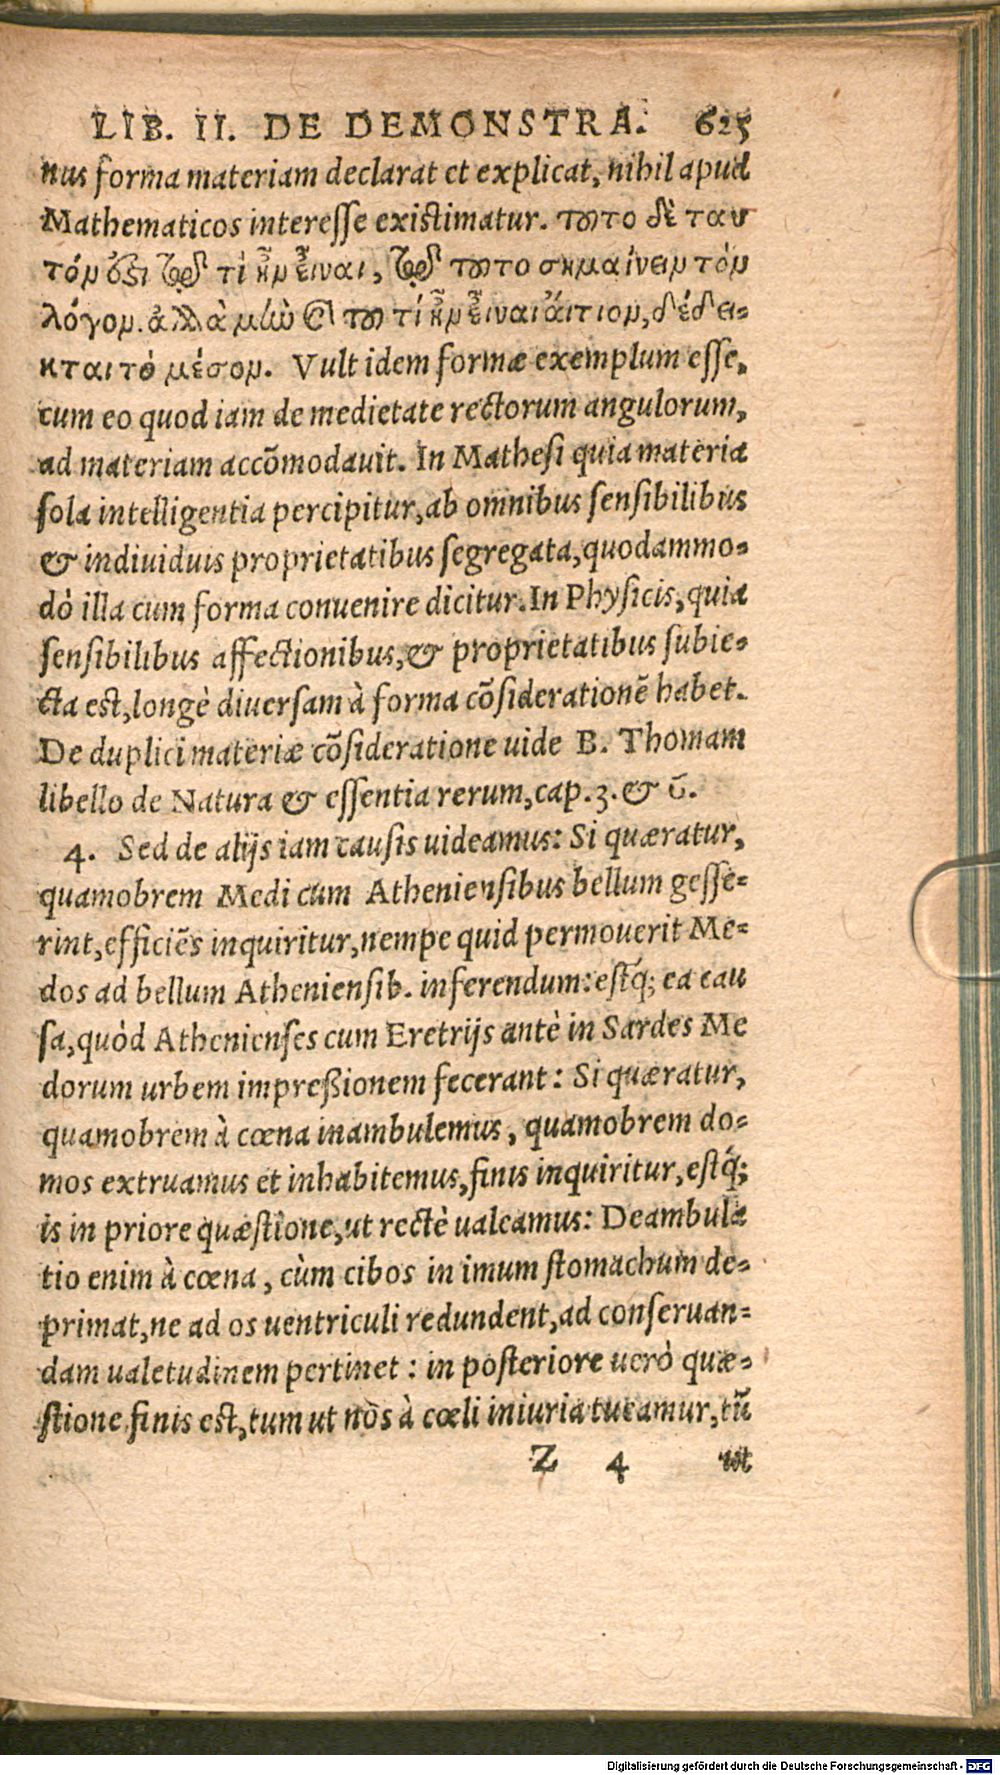 LIB. II. DE DEMONSTRA. 625
nus forma materiam declarat et explicat, nihil apud
Mathematicos interesse existimatur. τοῦτο δὲ ταυ
τόν ἐστι τῷ τί ἦν εἶναι, τῷ τοῦτο σημαίνειν τὸν
λόγον. ἀλλὰ μὴν καὶ τοῦ τί ἦν εἶναι ἄιτιον, δέδει-
κται τὸ μέσον. Vult idem formæ exemplum esse,
cum eo quod iam de medietate rectorum angulorum,
ad materiam accõmodauit. In Mathesi quia materia
sola intelligentia percipitur, ab omnibus sensibilibus
& indiuiduis proprietatibus segregata, quodammo-
dò illa cum forma conuenire dicitur. In Physicis, quia
sensibilibus affectionibus, & proprietatibus subie-
cta est, longè diuersam à forma cõsiderationẽ habet.
De duplici materiæ cõsideratione uide B. Thomam
libello de Natura & essentia rerum, cap. 3. &
4. Sed de alijs iam causis uideamus: Si quæratur,
quamobrem Medi cum Atheniensibus bellum gesse-
rint, efficiẽs inquiritur, nempe quid permouerit Me-
dos ad bellum Atheniensib. inferendum: estq́; ea cau
sa, quòd Athenienses cum Eretrijs antè in Sardes Me
dorum urbem impreßionem fecerant: Si quæratur,
quamobrem à cœna inambulemus, quamobrem do-
mos extruamus et inhabitemus, finis inquiritur, estq́;
is in priore quæstione, ut rectè ualeamus: Deambula
tio enim à cœna, cùm cibos in imum stomachum de-
primat, ne ad os uentriculi redundent, ad conseruan-
dam ualetudinem pertinet: in posteriore uerò quæ-
stione finis est, tum ut nos à cœli iniuria tueamur, tũ
Z 4 ut
Digitalisierung gefördert durch die Deutsche Forschungsgemeinschaft - DFG